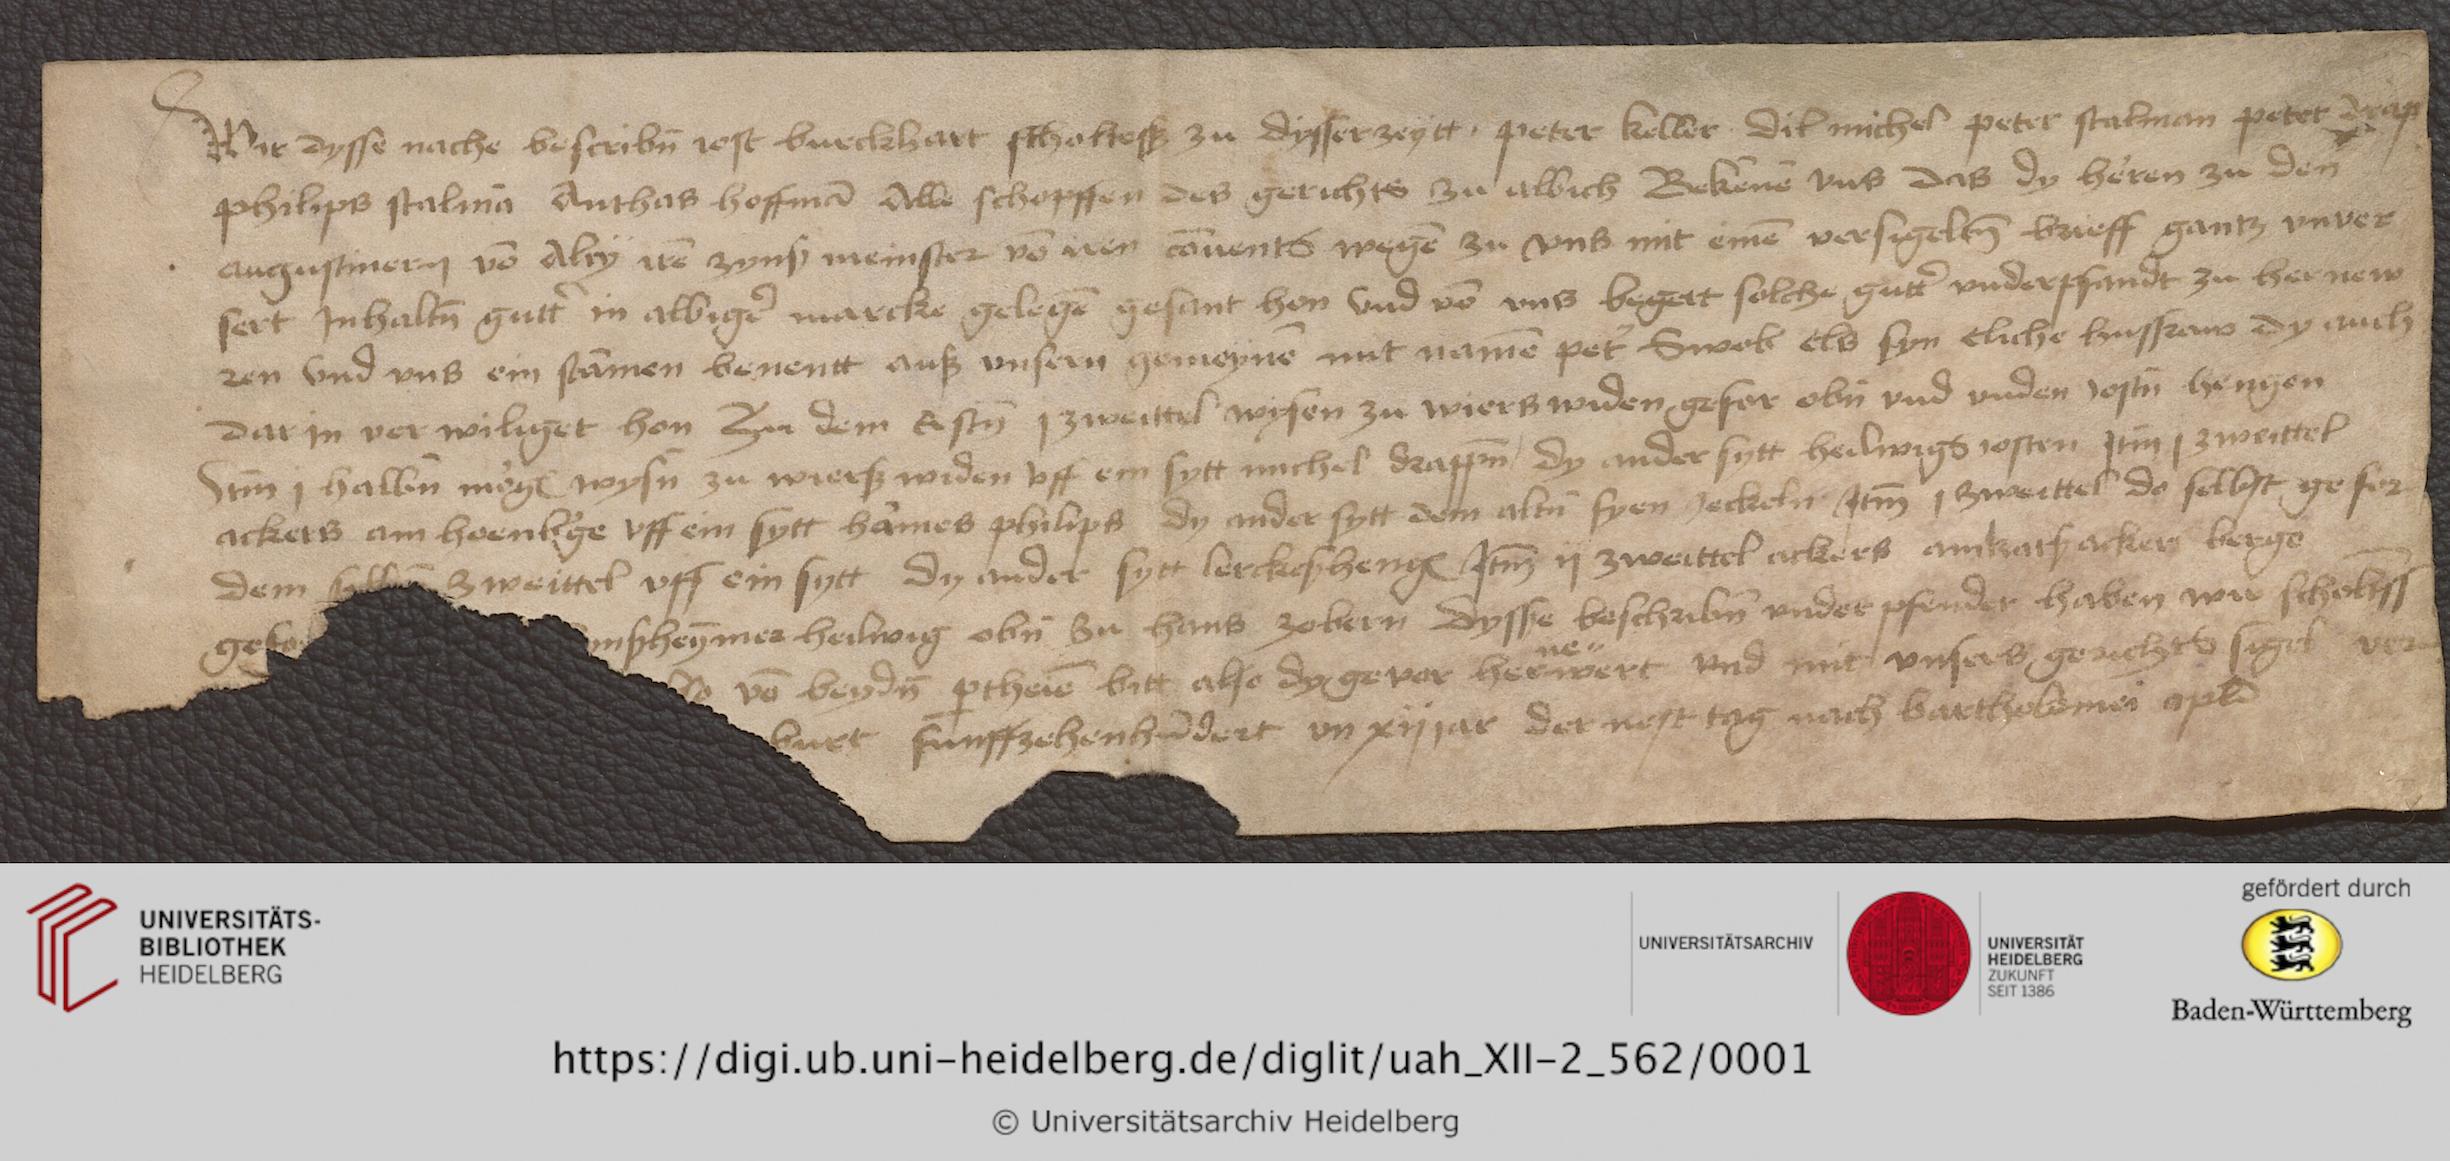 Wir dysse nache bescribn̄ iost burckhart scholtess zu dysser zeytt peter keller dil michel peter stalman peter drap
philips stalmā Anthas hoffmā Alle schopffen des gerichts zu albich Bekēnē vns das dy heren zu den
augustinern vō Alcy irē zynss meinster vō iren cōuents wegē zu vns mit einē versigeltn̄ brieff gantz vnver
sert Inhaltn̄ gutt' in albig' marcke gelegē gesant hon Vnd vō vns begert solche gutt' vnderpfandt zu hernew
ren Vnd vns ein stāmen benentt auss vnsern gemeynē mit namē pet' Swob els syn eliche hussfraw dy auch
dar in ver wiliget hon Zu dem Erstn̄ j zweittel wysen zu wierswiden gefor obn̄ vnd vnden Jostn̄ hengen
Itm̄ j halbn̄ morg wysn̄ zu wierss widen vff ein sytt michel drappn̄ dy ander sytt heilwigs josten Itm̄ j zweittel
ackers am hoenb'ge vff ein sytt hāmes philips dy ander sytt dem altn̄ fyen Jeckeln Itm̄ j zweittel do selbst ge for
dem zweittel vff ein sytt dy ander sytt lerckessheng Itm̄ ij zweittel ackers acker berge
gefor heilwig obn̄ zu hans zobern Dysse beschribn̄ vnder pfender haben wir scholtess
vō beydn̄ ptheiē bitt also dy gevor her ne wert vnd mit vnsers gerichts sigel ver
burt funffzehenhūdert vn xij jar der nest tag nach bartholomei apl̄i
UNIVERSITÄTS-
BIBLIOTHEK
HEIDELBERG
UNIVERSITÄTSARCHIV
UNIVERSITÄT
HEIDELBERG
ZUKUNFT
SEIT 1386
gefördert durch
Baden-Württemberg
https://digi.ub.uni-heidelberg.de/diglit/uah_XII-2_562/0001
© Universitätsarchiv Heidelberg